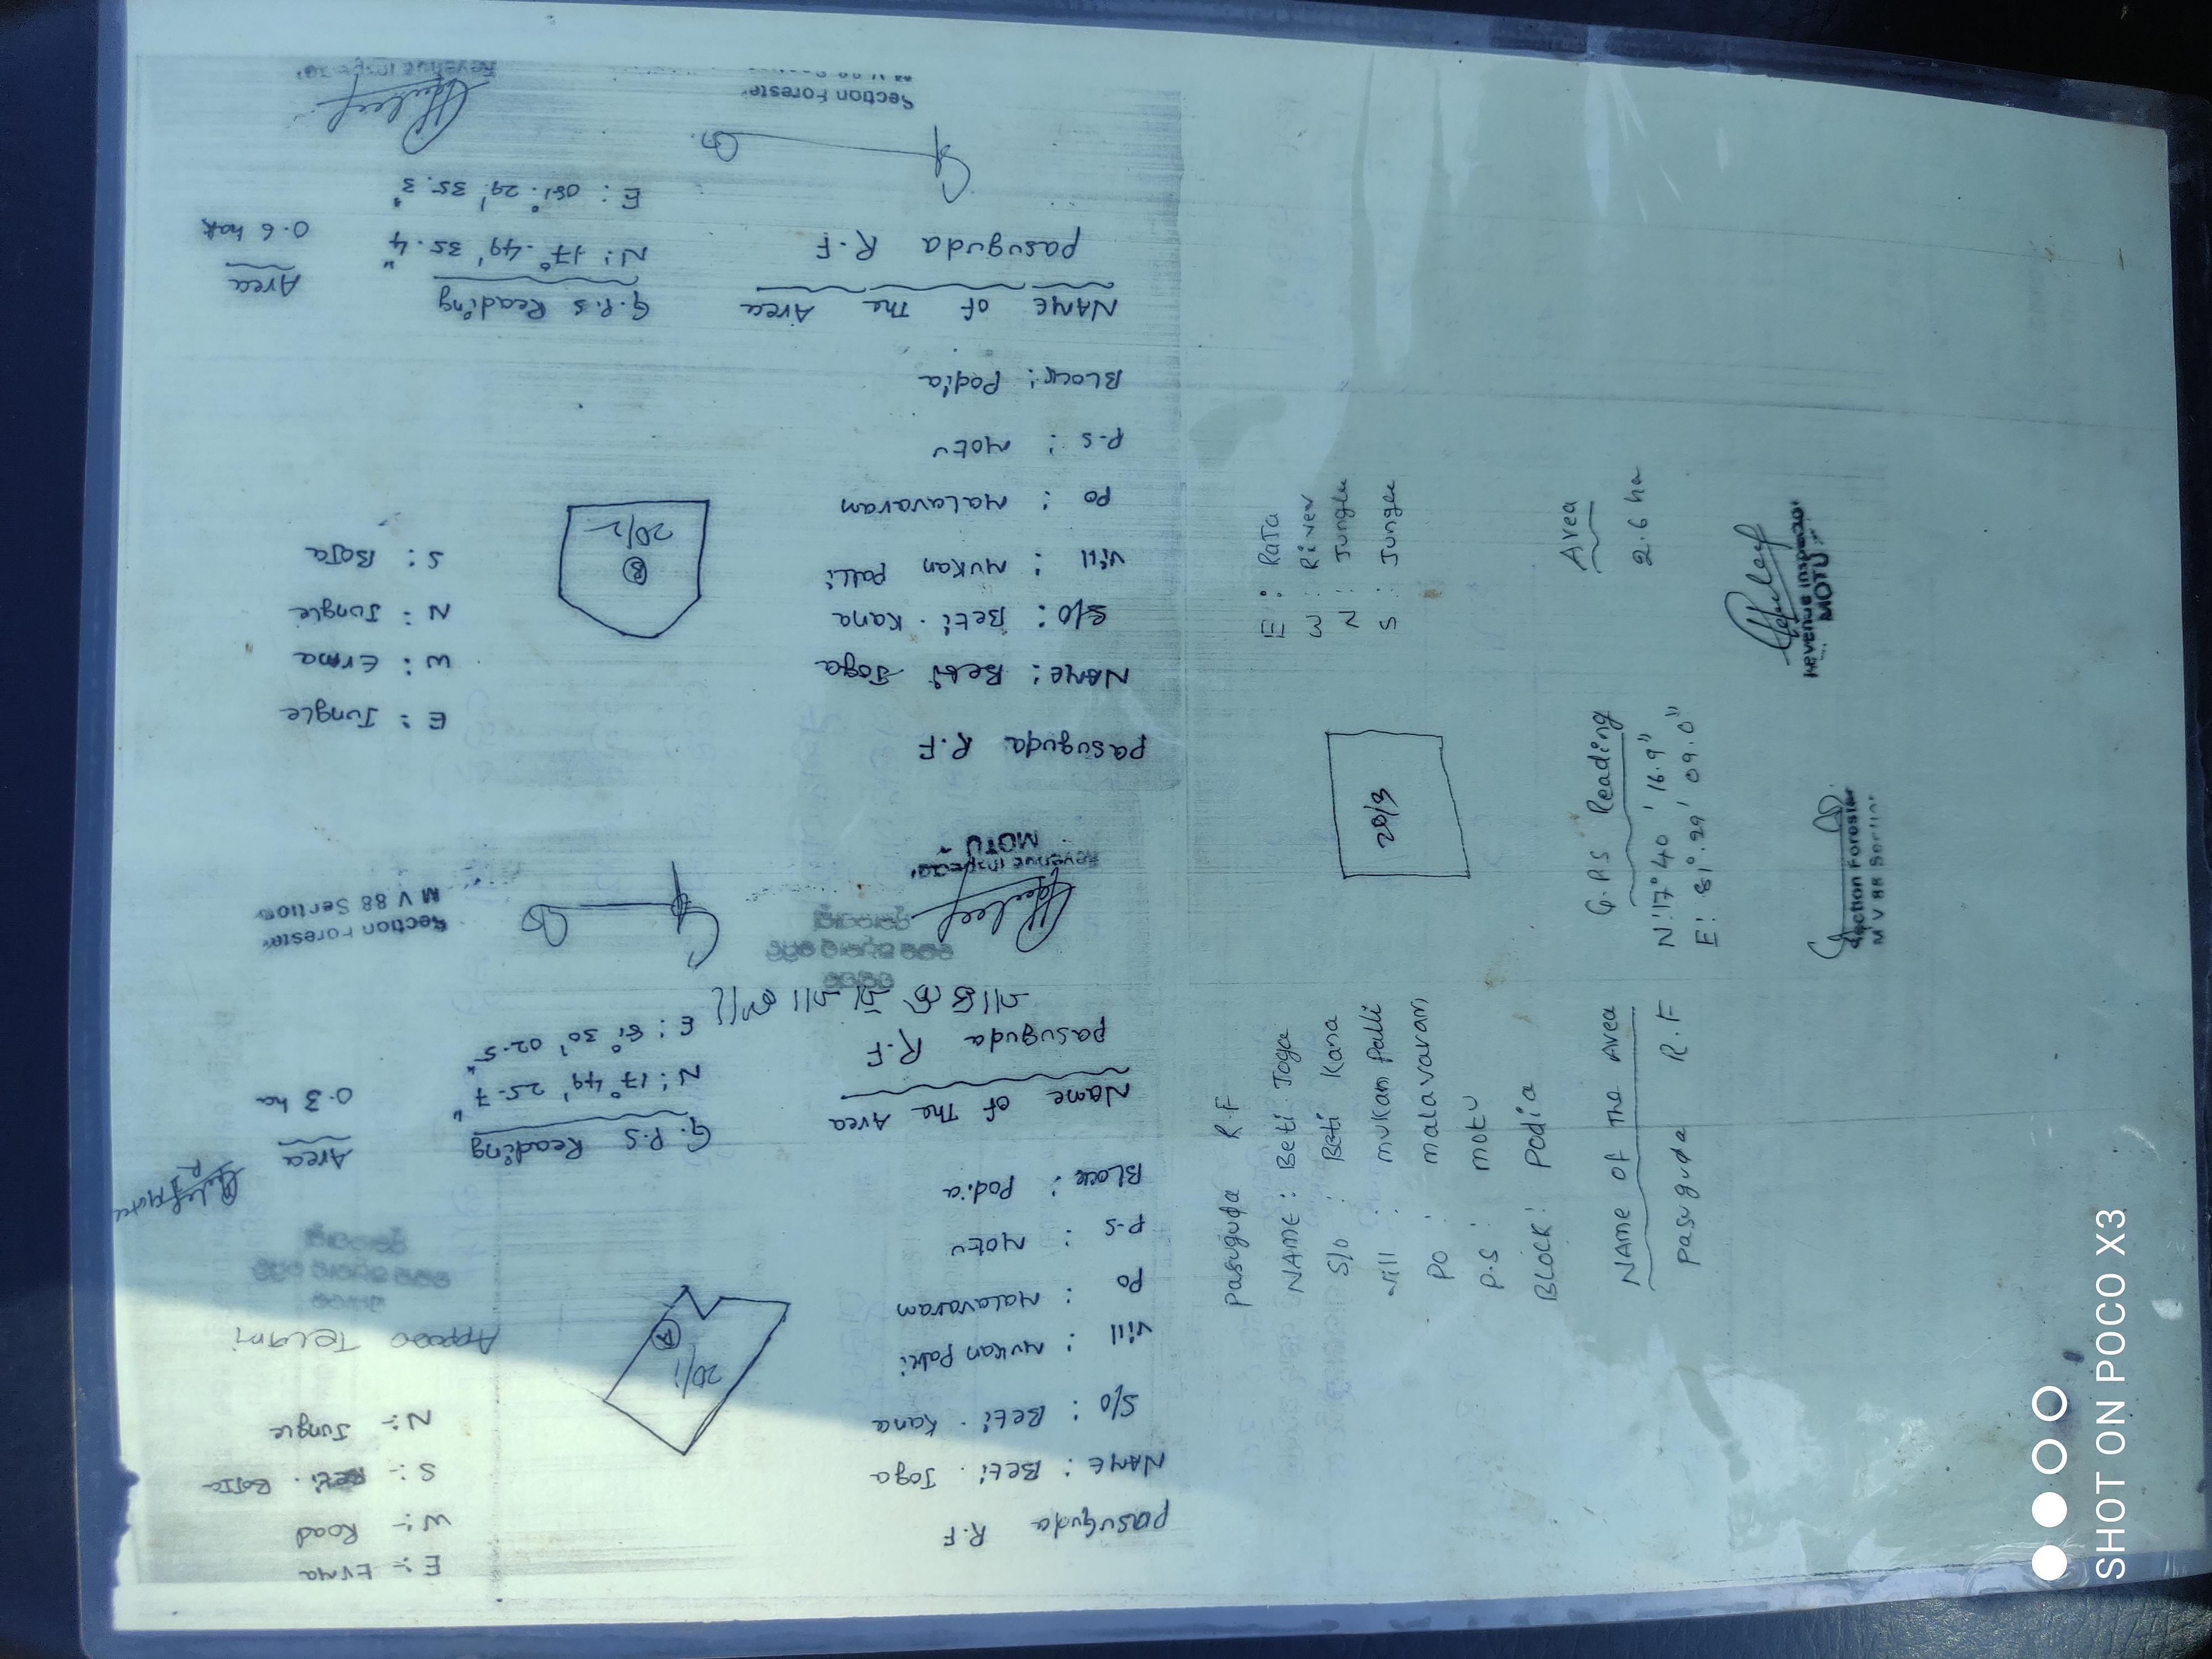 Pasuguda R.F
E :- Erma
NAME : Beti . Joga
W :- Road
S/O : Beti . Kana
S :- Beti . Bojja
Vill : Mukan Palli
N :- Jungle
20/1
A
PO : Malavaram
P.S : Motu
Block : Podia
Name of The Area
G.P.S Reading
Area
Pasuguda R.F
N : 17° 49' 25.7"
0.3 ha
E : 81° 30' 02.5"
Revenue Inspector
MOTU
Section Forester
M V 88 Section
Pasuguda R.F
E : Jungle
NAME : Beti Joga
W : Erma
S/O : Beti . Kana
N : Jungle
Vill : Mukan Palli
S : Bojja
B
20/2
PO : Malavaram
P.S : Motu
BLOCK : Podia
NAME OF The Area
G.P.S Reading
Area
Pasuguda R.F
N : 17° 49' 35.4"
0.6 hak
E : 081° 29' 35.3"
Section Forester
Revenue Inspector
Pasuguda R.F
NAME : Beti Joga
E : RaTa
S/o : Beti Kana
W : River
Vill : mukan Palli
N : Jungle
PO : malavaram
S : Jungle
20/3
P.S : motu
BLOCK : Podia
NAME of The Area
G.P.S Reading
Area
Pasuguda R.F
N : 17° 40' 16.9"
2.6 ha
E : 81°. 29' 09.0"
Section Forester
M V 88 Section
Revenue Inspector
MOTU
SHOT ON POCO X3